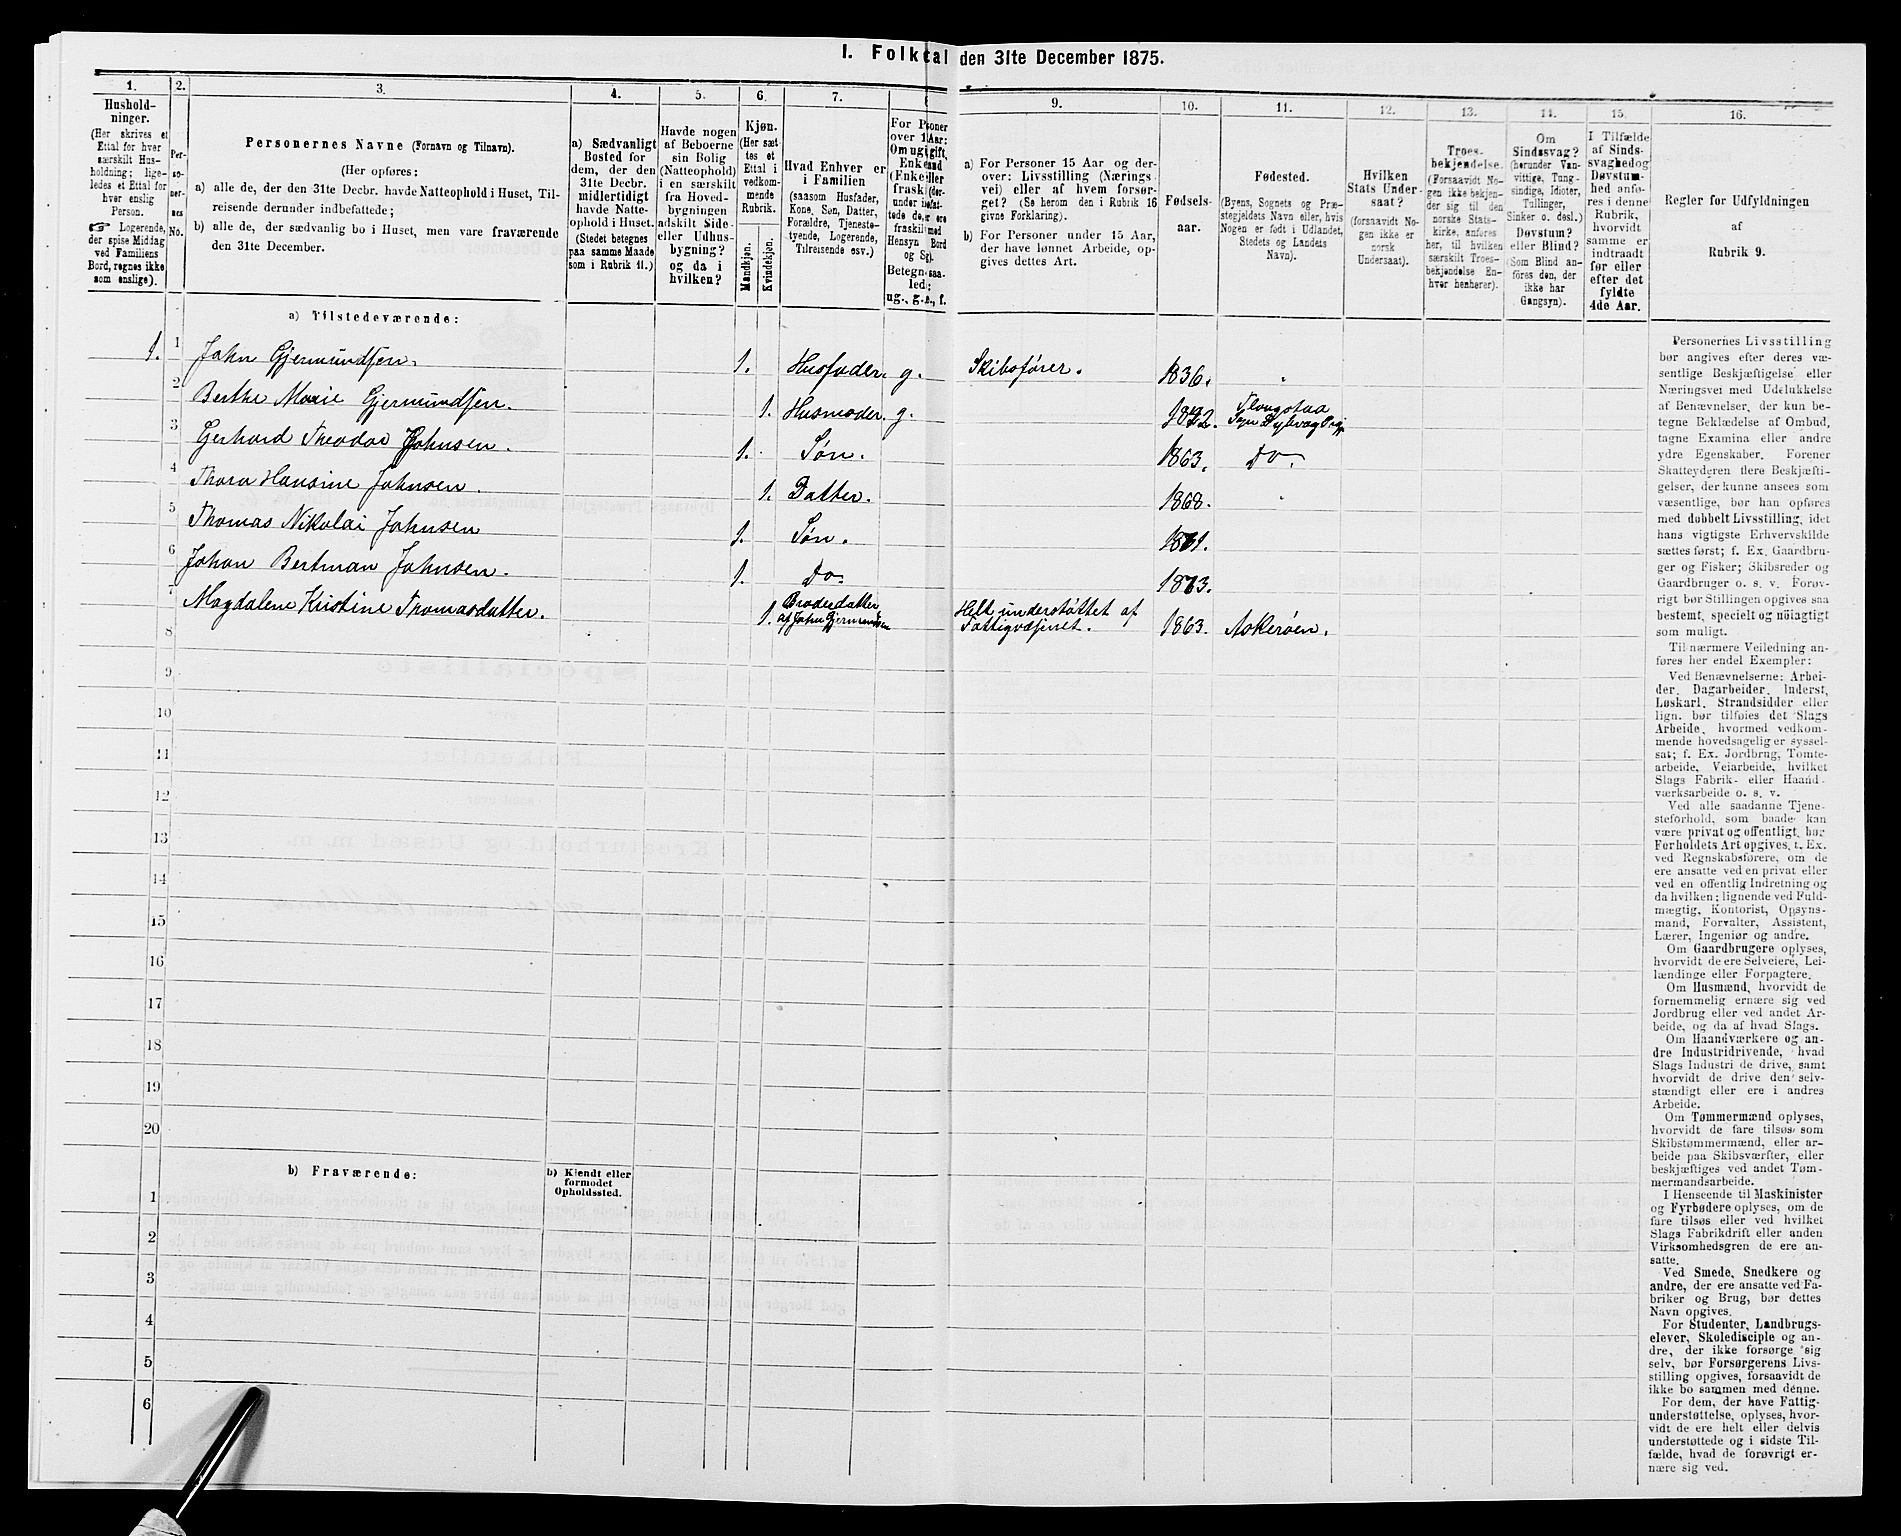 I. Folktal den 31te December 1875.
1.
2.
3.
4.
5.
6.
7.
8
9.
10.
11.
12.
13.
14.
15.
16.
Hushold-
ninger.
(Her skrives et
Ettal for hver
særskilt Hus-
holdning; lige-
ledes et Ettal for
hver enslig
Person.
☞ Logerende,
der spise Middag
ved Familiens
Bord, regnes ikke
som enslige).
Per-
so-
ner-
nes
No.
Personernes Navne (Fornavn og Tilnavn).
(Her opføres:
a) alle de, der den 31te Decbr. havde Natteophold i Huset, Til-
reisende derunder indbefattede;
b) alle de, der sædvanlig bo i Huset, men vare fraværende
den 31te December.
a) Sædvanligt
Bosted for
dem, der den
31te Decbr.
midlertidigt
havde Natte-
ophold i Huset.
(Stedet betegnes
paa samme Maade
som i Rubrik 11.)
Havde nogen
af Beboerne
sin Bolig
(Natteophold)
i en særskilt
fra Hoved-
bygningen
adskilt Side-
eller Udhus-
bygning?
og da i
hvilken?
Kjøn.
(Her sæt-
tes et
Ettal i
vedkom-
mende
Rubrik.
Mandkjøn.
Kvindekjøn.
Hvad Enhver er
i Familien
(saasom Husfader,
Kone, Søn, Datter,
Forældre, Tjeneste-
tyende, Logerende,
Tilreisende osv.)
a) For Personer 15 Aar og der-
over: Livsstilling (Nærings-
vei) eller af hvem forsør-
get? (Se herom den i Rubrik 16
givne Forklaring).
b) For Personer under 15 Aar,
der have lønnet Arbeide, op-
gives dettes Art.
Fødsels-
aar.
Fødested.
(Byens, Sognets og Præ-
stegjeldets Navn eller, hvis
Nogen er født i Udlandet,
Stedets og Landets
Navn).
Hvilken
Stats Under-
saat?
(forsaavidt No-
gen ikke er
norsk
Undersaat).
Troes-
bekjendelse.
(Forsaavidt No-
gen ikke bekjen-
der sig til den
norske Stats-
kirke, anføres
her, til hvilken
særskilt Troes-
bekjendelse En-
hver henhører).
Om
Sindssvag?
(herunder Van-
vittige, Tung-
sindige, Idioter,
Tullinger,
Sinker o. desl.)
Døvstum?
eller Blind?
(Som Blind an-
føres den, der
ikke har
Gangsyn).
I Tilfælde
af Sinds-
svaghed og
Døvstum-
hed anfø-
res i denne
Rubrik,
hvorvidt
samme er
indtraadt
før eller
efter det
fyldte
4de Aar.
Regler for Udfyldningen
af
Rubrik 9.
a) Tilstedeværende:
1. 1 John Gjermundsen. 1. Husfader. g. Skibsfører. 1836. "
2 Berthe Marie Gjermundsen. 1. Husmoder. g. 1842. Flougstaa
Sogn Dybvag Prgj
3 Gerhard Theodor Johnsen. 1. Søn. 1863. Do.
4 Thora Hansine Johnsen. 1. Datter. 1868. "
5 Thomas Nikolai Johnsen 1. Søn. 1871.
6 Johan Bertman Johnsen. 1. Do. 1873.
7 Magdalene Kristine Thomasdatter. 1. Broderdatter
af John Gjermundsen Helt understøttet af
Fattigvæsenet. 1863. Askerøen.
8
9
10
11
12
13
14
15
16
17
18
19
20
b) Fraværende:
b) Kjendt eller
formodet
Opholdssted.
1
2
3
4
5
6
Personernes Livsstilling
bør angives efter deres væ-
sentlige Beskjæftigelse eller
Næringsvei med Udelukkelse
af Benævnelser, der kun be-
tegne Beklædelse af Ombud,
tagne Examina eller andre
ydre Egenskaber. Forener
Skatteyderen flere Beskjæfti-
gelser, der kunne ansees som
væsentlige, bør han opføres
med dobbelt Livsstilling, idet
hans vigtigste Erhvervskilde
sættes først; f. Ex. Gaardbru-
ger og Fisker; Skibsreder og
Gaardbruger o. s. v. Forøv-
rigt bør Stillingen opgives saa
bestemt, specielt og nöiagtigt
som muligt.
Til nærmere Veiledning an-
føres her endel Exempler:
Ved Benævnelserne: Arbei-
der, Dagarbeider, Inderst,
Løskarl, Strandsidder eller
lign. bør tilføies det Slags
Arbeide, hvormed vedkom-
mende hovedsagelig er syssel-
sat; f. Ex. Jordbrug, Tomte-
arbeide, Veiarbeide, hvilket
Slags Fabrik- eller Haand-
værksarbeide o. s. v.
Ved alle saadanne Tjene-
steforhold, som baade kan
være privat og offentligt, bør
Forholdets Art opgives, t. Ex.
ved Regnskabsførere, om de
ere ansatte ved en privat eller
ved en offentlig Indretning og
da hvilken; lignende ved Fuld-
mægtig, Kontorist, Opsyns-
mand, Forvalter, Assistent,
Lærer, Ingeniør og andre.
Om Gaardbrugere oplyses,
hvorvidt de ere Selveiere, Lei-
lændinge eller Forpagtere.
Om Husmænd, hvorvidt de
fornemmelig ernære sig ved
Jordbrug eller ved andet Ar-
beide, og da af hvad Slags.
Om Haandværkere og an-
dre Industridrivende, hvad
Slags Industri de drive, samt
hvorvidt de drive den selv-
stændigt eller ere i andres
Arbeide.
Om Tømmermænd oplyses,
hvorvidt de fare tilsøs som
Skibstømmermænd, eller ar-
beide paa Skibsværfter, eller
beskjæftiges ved andet Tøm-
mermandsarbeide.
I Henseende til Maskinister
og Fyrbødere oplyses, om de
fare tilsøs eller ved hvilket
Slags Fabrikdrift eller anden
Virksomhedsgren de ere an-
satte.
Ved Smede, Snedkere og
andre, der ere ansatte ved Fa-
briker og Brug, bør dettes
Navn opgives.
For Studenter, Landbrugs-
elever, Skoledisciple og an-
dre, der ikke forsørge sig
selv, bør Forsørgerens Livs-
stilling opgives, forsaavidt de
ikke bo sammen med denne.
For dem, der have Fattig-
understøttelse, oplyses, hvor-
vidt de ere helt eller delvis
understøttede og i sidste Til-
fælde, hvad de forøvrigt er-
nære sig ved.